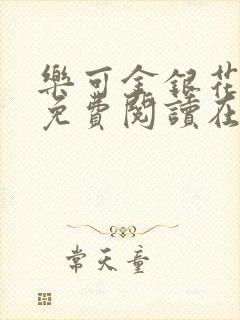 樂可金銀花
免費閱讀在
常天童